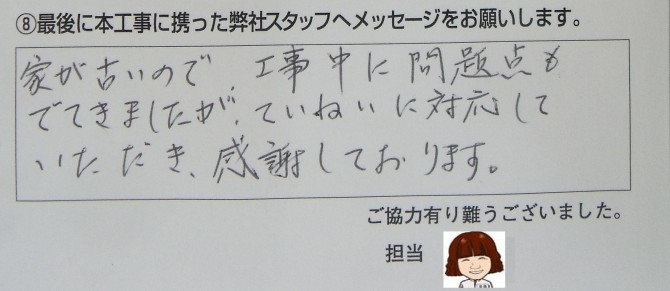 ⑧最後に本工事に携った弊社スタッフへメッセージをお願いします。
家が古いので、工事中に問題点も
でてきましたが、ていねいに対応して
いただき、感謝しております。
ご協力有り難うございました。
担当